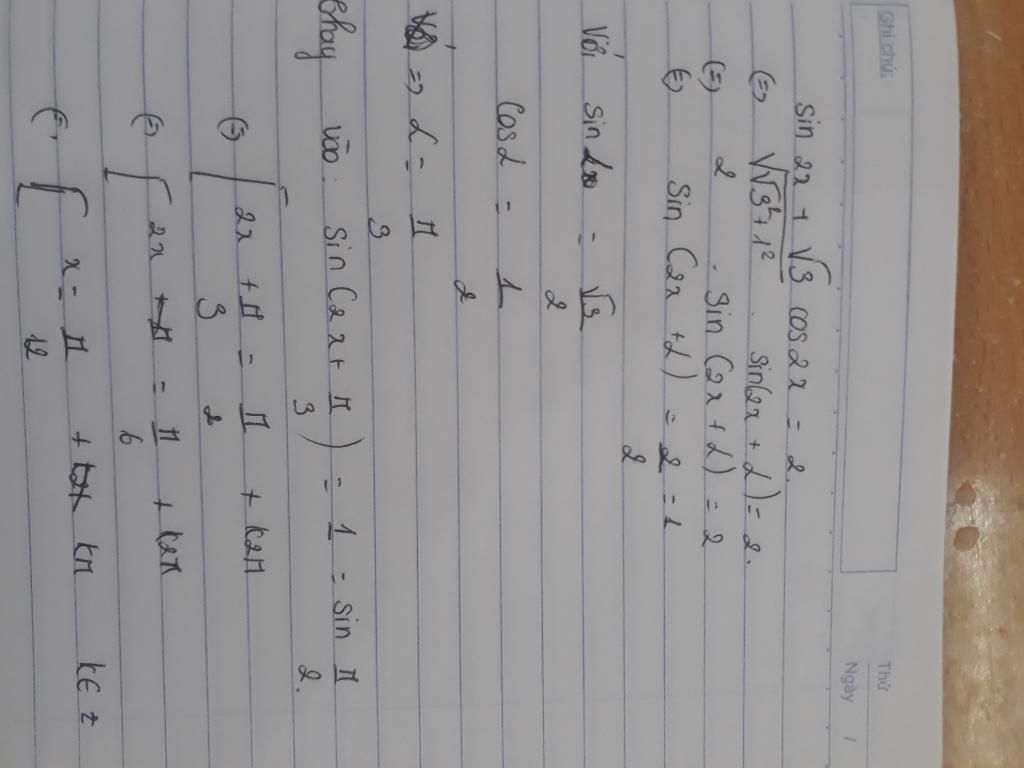 Ghi chú:
Thứ
Ngày /
sin 2x + √3 cos 2x = 2.
(=) √(√3² + 1²) . sin(2x + α) = 2.
(=) 2 . Sin (2x + α) = 2
(=) Sin (2x + α) = 2/2 = 1
Với sin α = √3/2
Cos α = 1/2
=> α = π/3
thay vào: sin (2x + π/3) = 1 = sin π/2.
(=) [ 2x + π/3 = π/2 + k2π
(=) [ 2x = π/6 + k2π
(=) [ x = π/12 + kπ k∈z